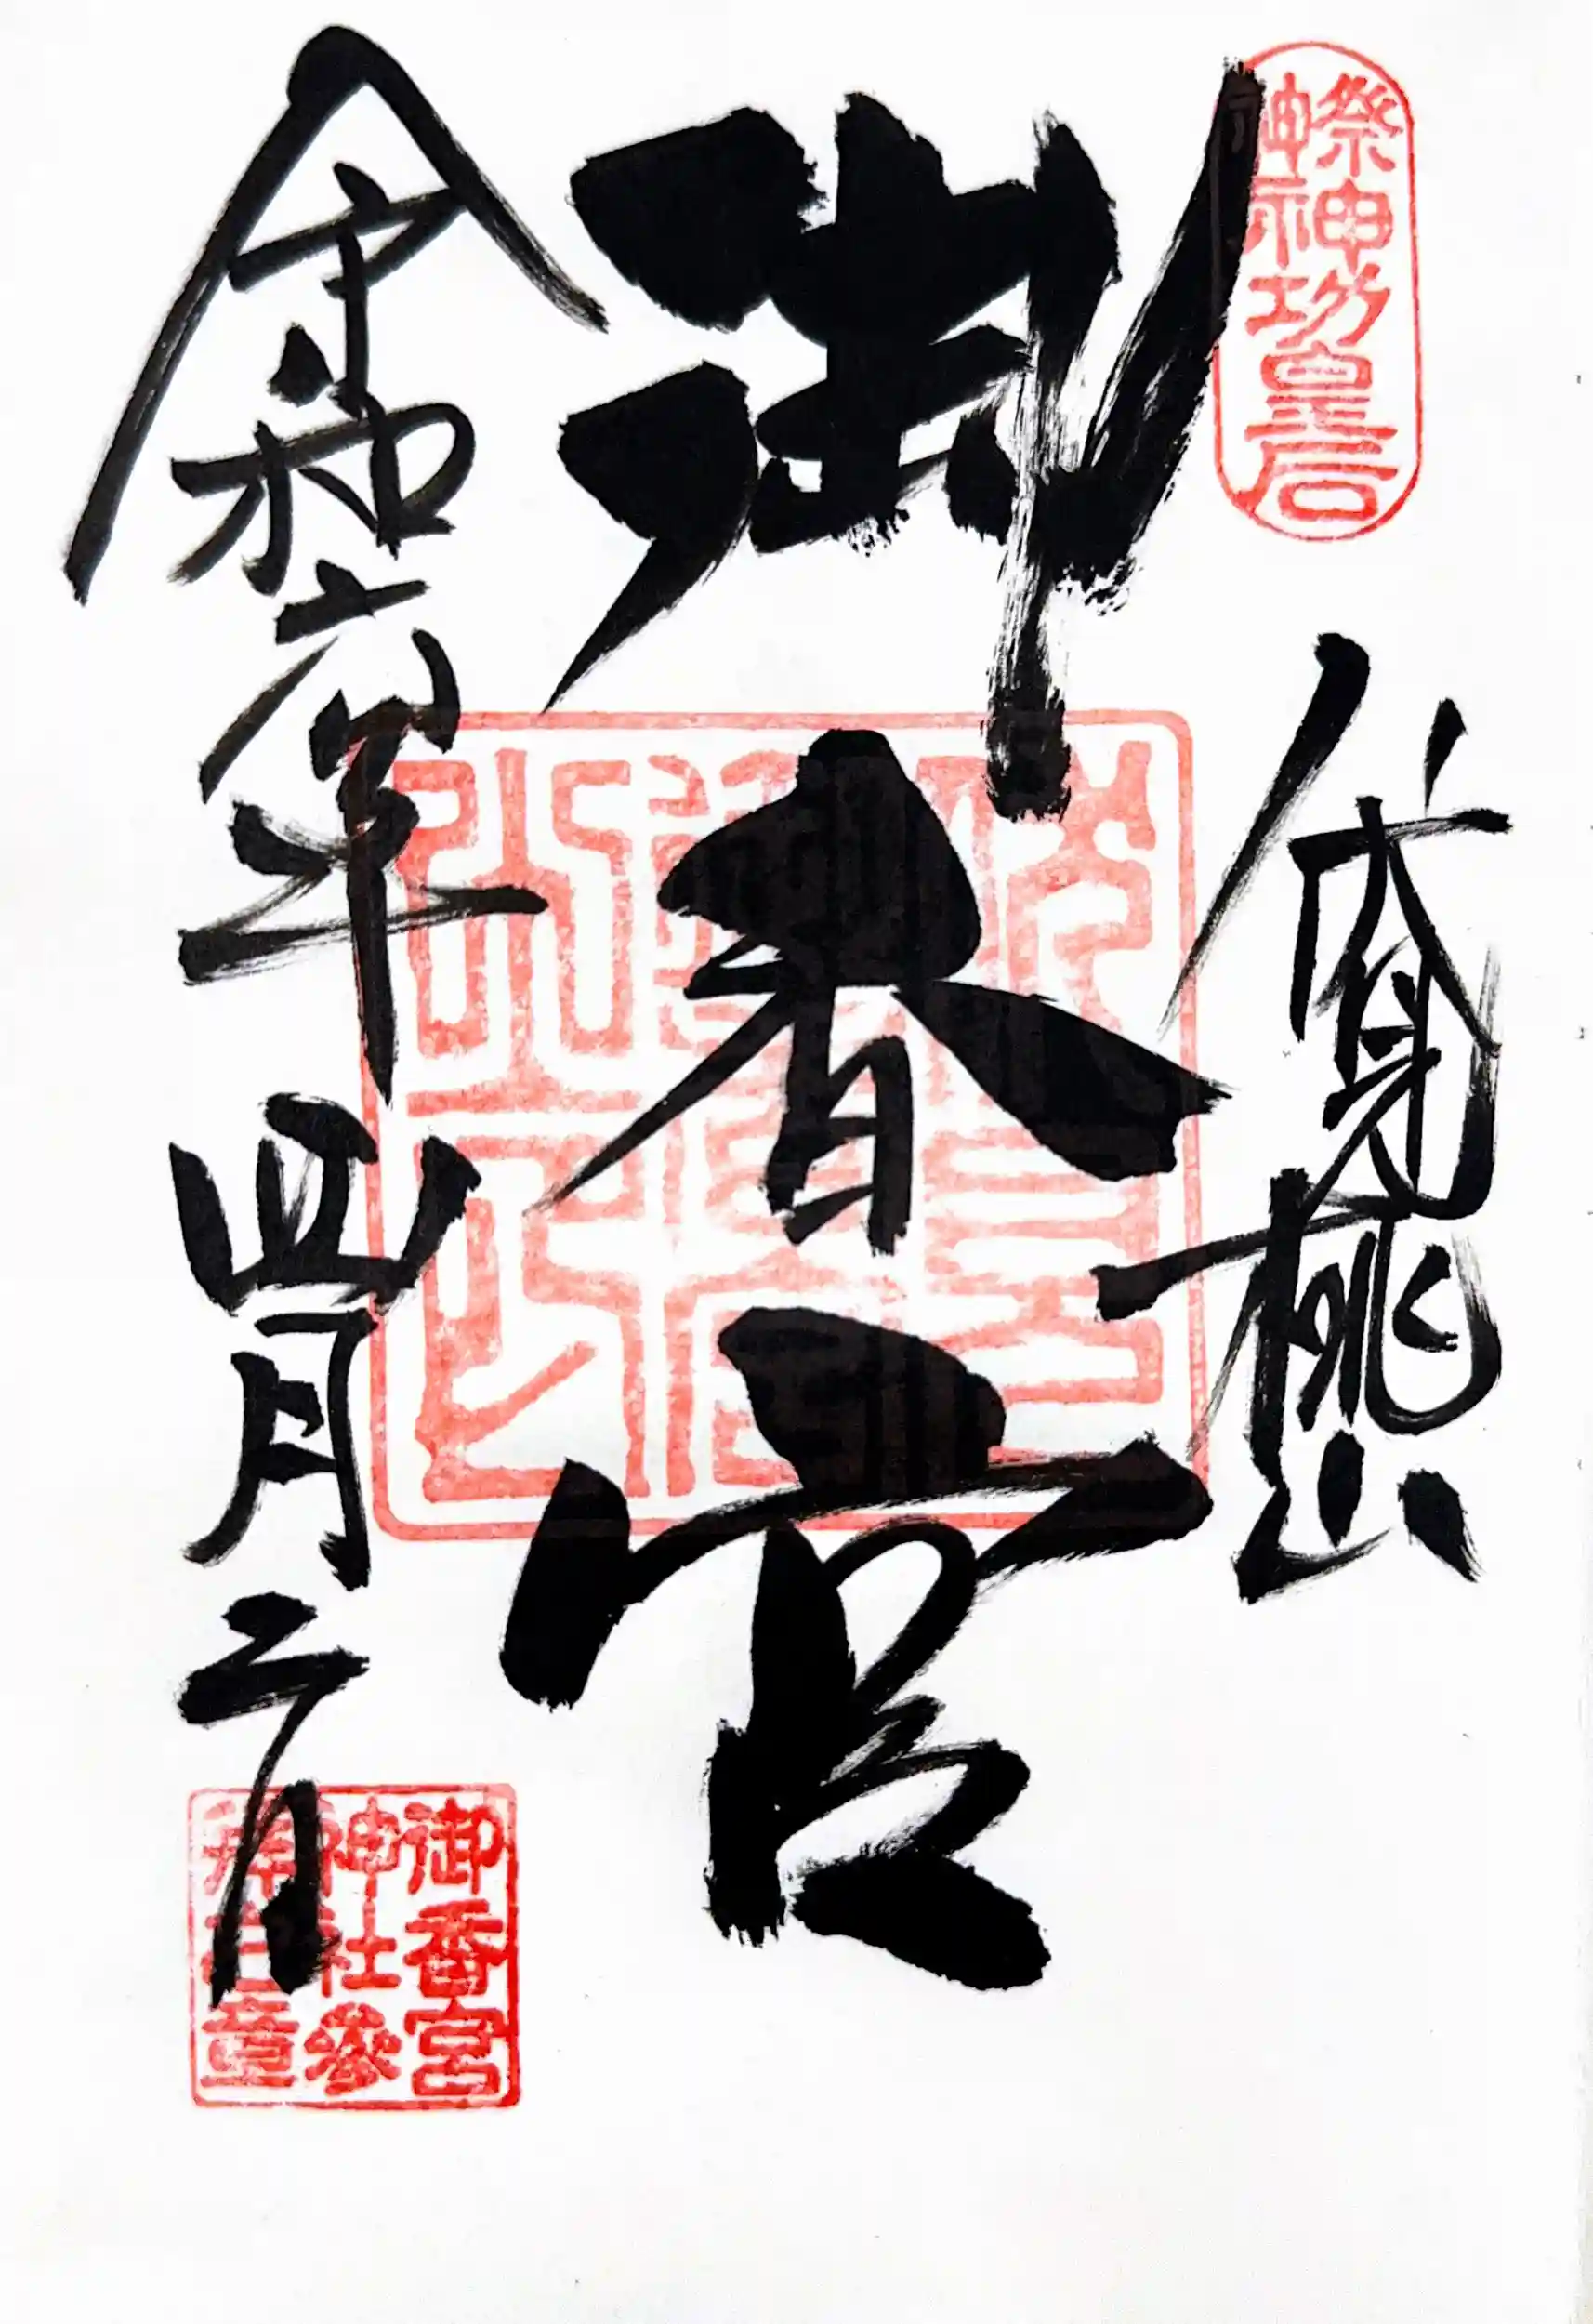 祭神
神功皇后
伏見桃山
御香宮
令和六年四月二日
御香宮
神社参
拝之章